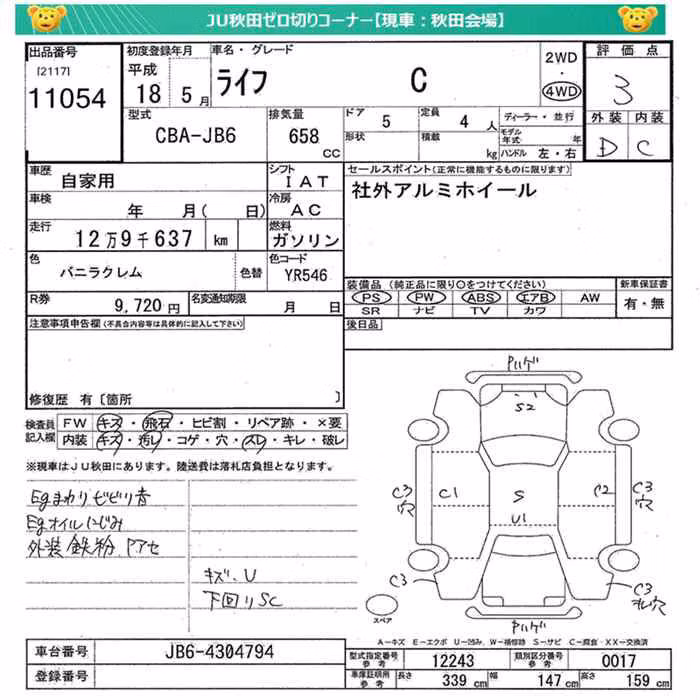 JU秋田ゼロ切りコーナー【現車：秋田会場】
出品番号
[2117]
11054
初度登録年月
平成
18 5月
車名・グレード
ライフ C
2WD
・
4WD
評価点
3
外装 内装
D C
型式
CBA-JB6
排気量
658
CC
ドア 5
定員 4 人
形状
積載 kg
ディーラー・並行
モデル年式 年
ハンドル 左・右
車歴
自家用
シフト
IAT
車検
年 月( 日)
冷房
AC
走行
12万9千637 km
燃料
ガソリン
色
バニラクレム
色替
色コード
YR546
R券
9,720円
名変通知期限
月 日
セールスポイント(正常に機能するものに限ります)
社外アルミホイール
装備品(純正品に限り○をつけてください)
PS PW ABS エアB AW
SR ナビ TV カワ
新車保証書
有・無
後日品
注意事項申告欄(不具合内容等は具体的に記入して下さい)
修復歴 有〔箇所 〕
検査員記入欄
FW キズ・飛石・ヒビ割・リペア跡・×要
内装 キズ・汚レ・コゲ・穴・スレ・キレ・破レ
※現車はJU秋田にあります。陸送費は落札店負担となります。
Egまわりビビリ音
Egオイルにじみ
外装 鉄粉 Pアセ
キズ、U
下回りSC
Pハゲ
S2
C3
穴
C1
S
C2
C3
穴
U1
C3
C3
スレ穴
Pハゲ
スペア
A−キズ E−エクボ U−凹み W−補修跡 S−サビ C−腐食 ・XX−交換済
車台番号
JB6-4304794
登録番号
型式指定番号
参考
12243
類別区分番号
参考
0017
車庫証明用
参考
長さ 339 cm
幅 147 cm
高さ 159 cm